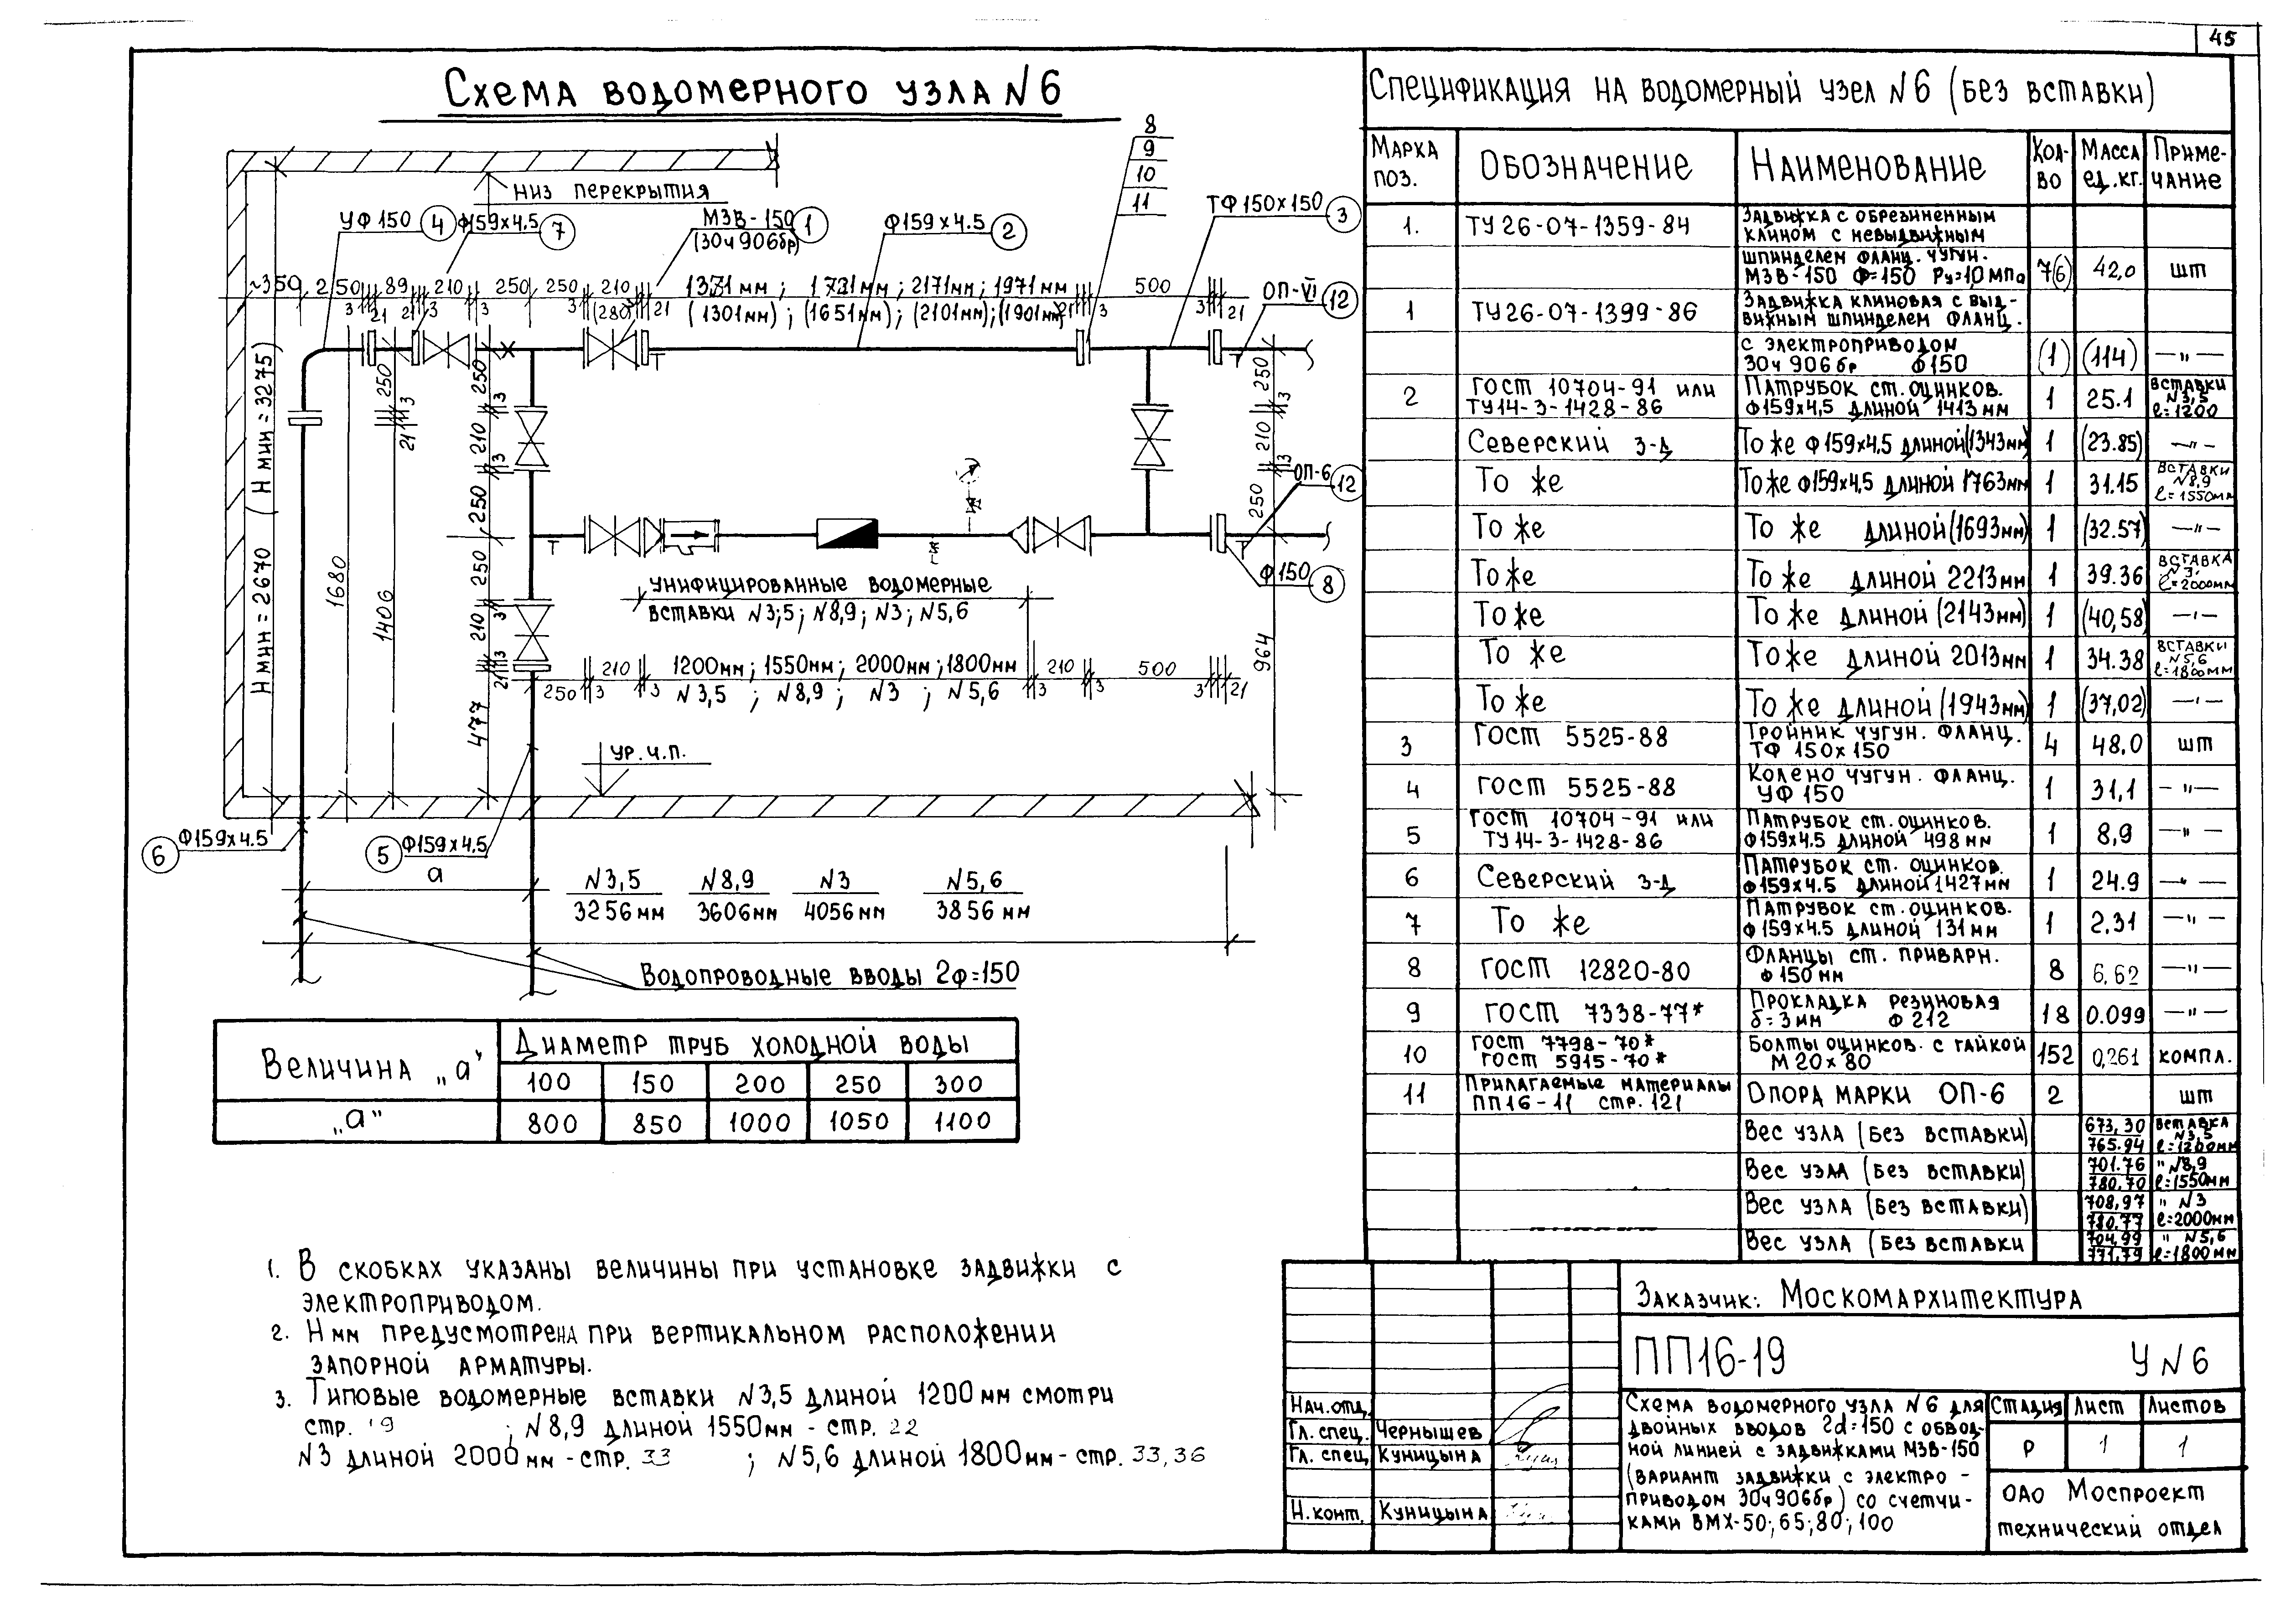 45
Схема водомерного узла N6
низ перекрытия
УФ 150 4
ф159х4.5 7
МЗВ-150 1
(30ч906бр)
ф159х4.5 2
8
9
10
11
ТФ150х150 3
~350 250 89 210 250 250 210 1721мм; 2171мм; 1971мм 500
3 21 21 3 3 3 (280) 21 (1301мм); (1651мм); (2101мм); (1901мм) 21 3 3 21
ОП-VI 12
Нмин=2670 (Нмин=3275)
1680
1406
250
3
21
250
3
210
3
250
250
210
3
3
21
477
250
3
210
3
250
964
ОП-6 12
ф150 8
унифицированные водомерные
вставки N3;5; N8,9; N3; N5,6
250 3 210 3 1200мм; 1550мм; 2000мм; 1800мм 3 210 3 500 3 21
N3,5 ; N8,9 ; N3 ; N5,6
ур.ч.п.
6 ф159х4.5
5 ф159х4.5
а
N3,5 N8,9 N3 N5,6
3256мм 3606мм 4056мм 3856мм
Водопроводные вводы 2ф=150
Величина „а"
Диаметр труб холодной воды
100 150 200 250 300
„а" 800 850 1000 1050 1100
1. В скобках указаны величины при установке задвижки с
электроприводом.
2. Нмм предусмотрена при вертикальном расположении
запорной арматуры.
3. Типовые водомерные вставки N3,5 длиной 1200мм смотри
стр. 19 ; N8,9 длиной 1550мм - стр. 22
N3 длиной 2000мм - стр. 33 ; N5,6 длиной 1800мм - стр. 33,36
Спецификация на водомерный узел N6 (без вставки)
Марка поз. Обозначение Наименование Кол-во Масса ед.кг. Примечание
1. ТУ26-07-1359-84 Задвижка с обрезиненным
клином с невыдвижным
шпинделем фланц. чугун.
МЗВ-150 Ф=150 Ру=1,0мпа 7(6) 42,0 шт
1 ТУ26-07-1399-86 Задвижка клиновая с выд-
вижным шпинделем фланц.
с электроприводом
30ч906бр ф150 (1) (114) —"—
2 ГОСТ 10704-91 или Патрубок ст. оцинков. вставки
ТУ14-3-1428-86 ф159х4,5 длиной 1413мм 1 25.1 N3,5 ℓ=1200
Северский з-д То же ф159х4.5 длиной (1343мм) 1 (23.85) —"—
То же То же ф159х4,5 длиной 1763мм 1 31.15 вставки N8,9 ℓ=1550мм
То же То же длиной (1693мм) 1 (32.57) —"—
То же То же длиной 2213мм 1 39.36 вставка N3, ℓ=2000мм
То же То же длиной (2143мм) 1 (40,58) —"—
То же То же длиной 2013мм 1 34.38 вставки N5,6 ℓ=1800мм
То же То же длиной (1943мм) 1 (37,02) —"—
3 ГОСТ 5525-88 Тройник чугун. фланц.
ТФ 150х150 4 48,0 шт
4 ГОСТ 5525-88 Колено чугун. фланц.
УФ 150 1 31,1 —"—
5 ГОСТ 10704-91 или Патрубок ст. оцинков.
ТУ14-3-1428-86 ф159х4.5 длиной 498мм 1 8,9 —"—
6 Северский з-д Патрубок ст. оцинков.
ф159х4.5 длиной 1427мм 1 24.9 —"—
7 То же Патрубок ст. оцинков.
ф159х4.5 длиной 131мм 1 2.31 —"—
8 ГОСТ 12820-80 Фланцы ст. приварн.
ф150мм 8 6,62 —"—
9 ГОСТ 7338-77* Прокладка резиновая
δ=3мм ф212 18 0.099 —"—
10 ГОСТ 7798-70* Болты оцинков. с гайкой
ГОСТ 5915-70* М20х80 152 0,261 компл.
11 Прилагаемые материалы Опора марки ОП-6 2 шт
ПП16-11 стр. 121
Вес узла (без вставки) 673,30 765.94 вставка N3,5 ℓ=1200мм
Вес узла (без вставки) 701.76 780,70 " N8,9 ℓ=1550мм
Вес узла (без вставки) 708,97 780.77 " N3 ℓ=2000мм
Вес узла (без вставки 704,99 771,79 " N5,6 ℓ=1800мм
Заказчик: Москомархитектура
ПП16-19 У N6
Нач.отд.
Гл. спец. Чернышев
Гл. спец. Куницына
Н.конт. Куницына
Схема водомерного узла N6 для
двойных вводов 2d=150 с обвод-
ной линией с задвижками МЗВ-150
(вариант задвижки с электро-
приводом 30ч906бр) со счетчи-
ками ВМХ-50;65;80;100
Стадия Лист Листов
Р 1 1
ОАО Моспроект
технический отдел